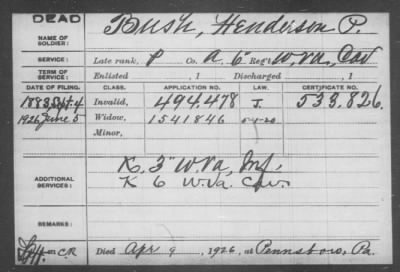 DEAD
NAME OF SOLDIER: Bush, Henderson P.
SERVICE: Late rank, P Co. A, 6" Reg't W. Va, Cav
TERM OF SERVICE: Enlisted , 1 Discharged , 1
DATE OF FILING. CLASS. APPLICATION NO. LAW. CERTIFICATE NO.
1883, Sept. 4 Invalid, 494478 J. 533.826
1926 June 5 Widow, 1541846 5-1-20
Minor,
ADDITIONAL SERVICES: K. 3" W. Va, Inf,
K 6 W. Va. Cav.
REMARKS:
C.R Died Apr 9, 1926, at Pennsboro, Pa.